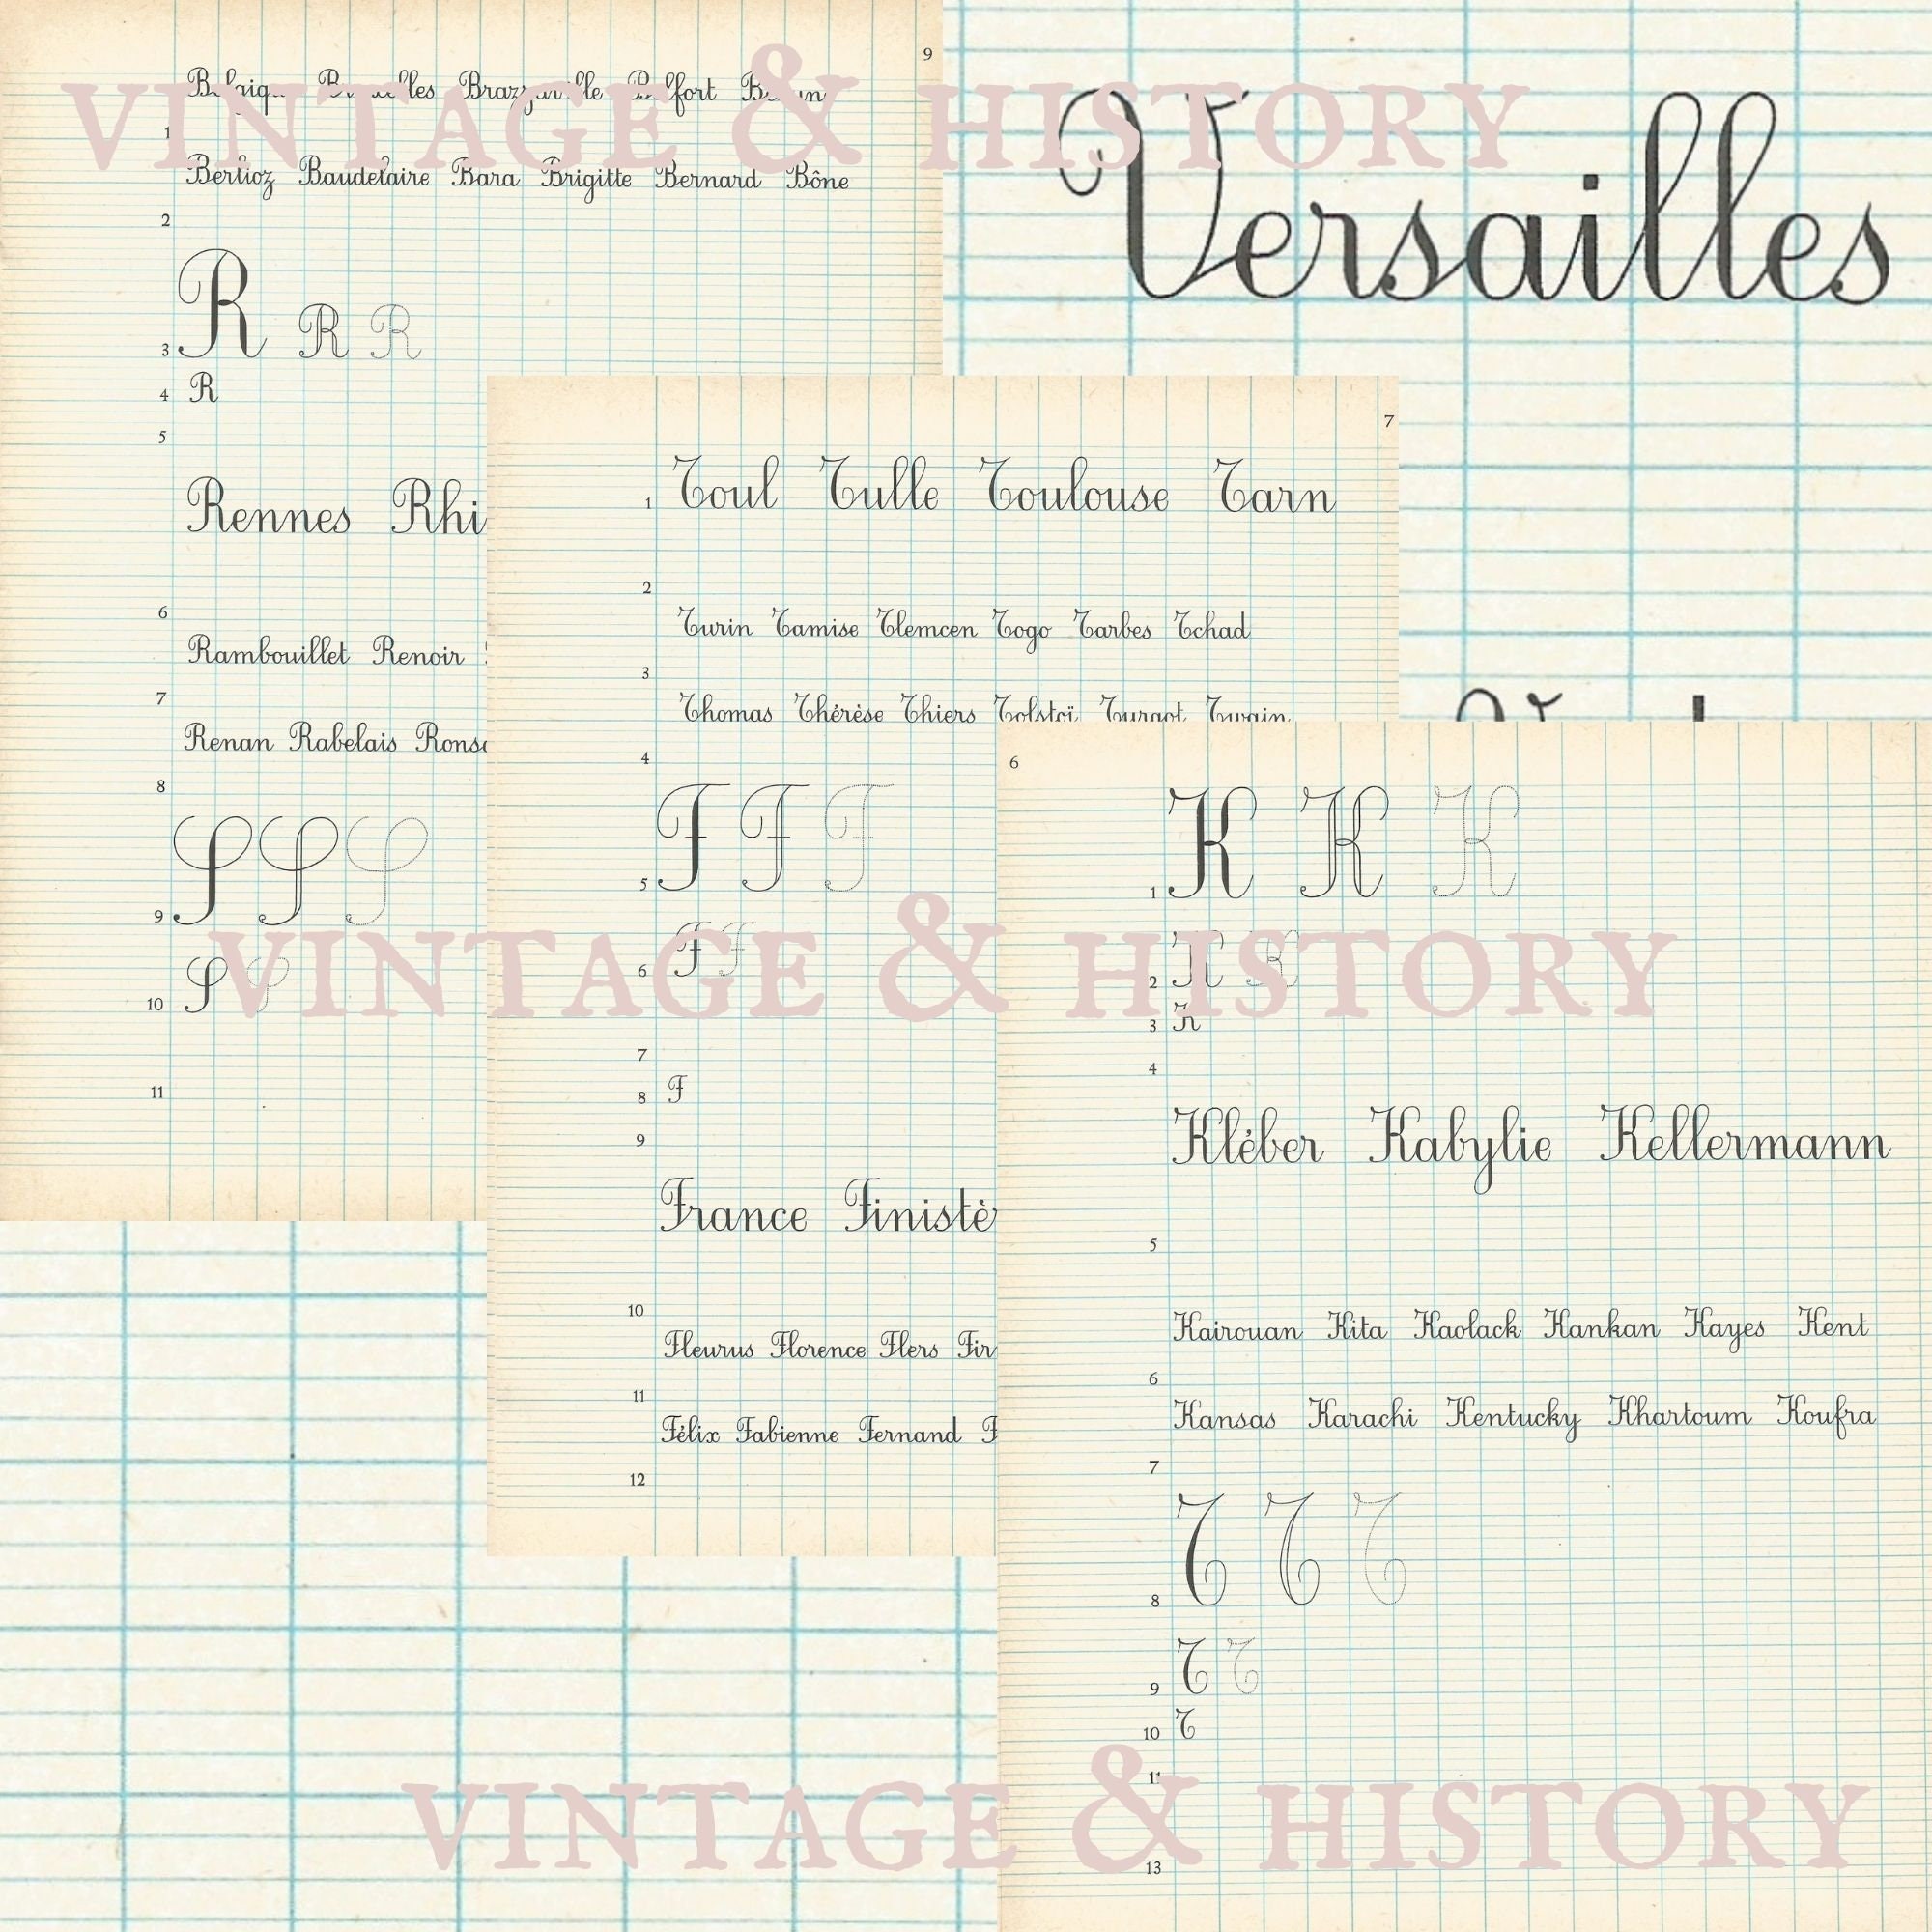 9
Belgique Bruxelles Brazzaville Belfort
1
Berlioz Baudelaire Bara Brigitte Bernard Bône
2
R R R
3
R
4
5
Rennes Rhi
6
Rambouillet Renoir
7
Renan Rabelais Ronsa
8
S S S
9
S S
10
11
Versailles
7
Toul Tulle Toulouse Tarn
1
2
Turin Tamise Tlemcen Togo Tarbes Tchad
3
Thomas Thérèse Thiers Tolstoï Turgot Twain
4
F F F
5
F F
6
7
F
8
9
France Finistè
10
Fleurus Florence Flers Fir
11
Félix Fabienne Fernand F
12
6
K K K
1
K K
2
K
3
4
Kléber Kabylie Kellermann
5
Kairouan Kita Kaolack Kankan Kayes Kent
6
Kansas Karachi Kentucky Khartoum Koufra
7
T T T
8
T T
9
T
10
11
13
VINTAGE & HISTORY
VINTAGE & HISTORY
VINTAGE & HISTORY